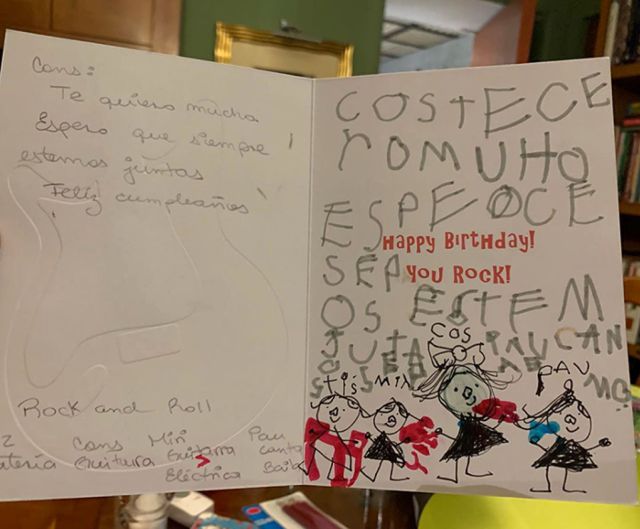 Cons:
Te quiero mucho
Espero que siempre
estemos juntas
Feliz cumpleaños
Rock and Roll
Cons Miri Pau
Guitarra Guitarra canta
Eléctrica Baila
COSTECE
ROMUHO
ESPEOCE
HAPPY BIRTHDAY!
SEP YOU ROCK!
OS ESTEM
JUTA PAU CAN
COS
PAU